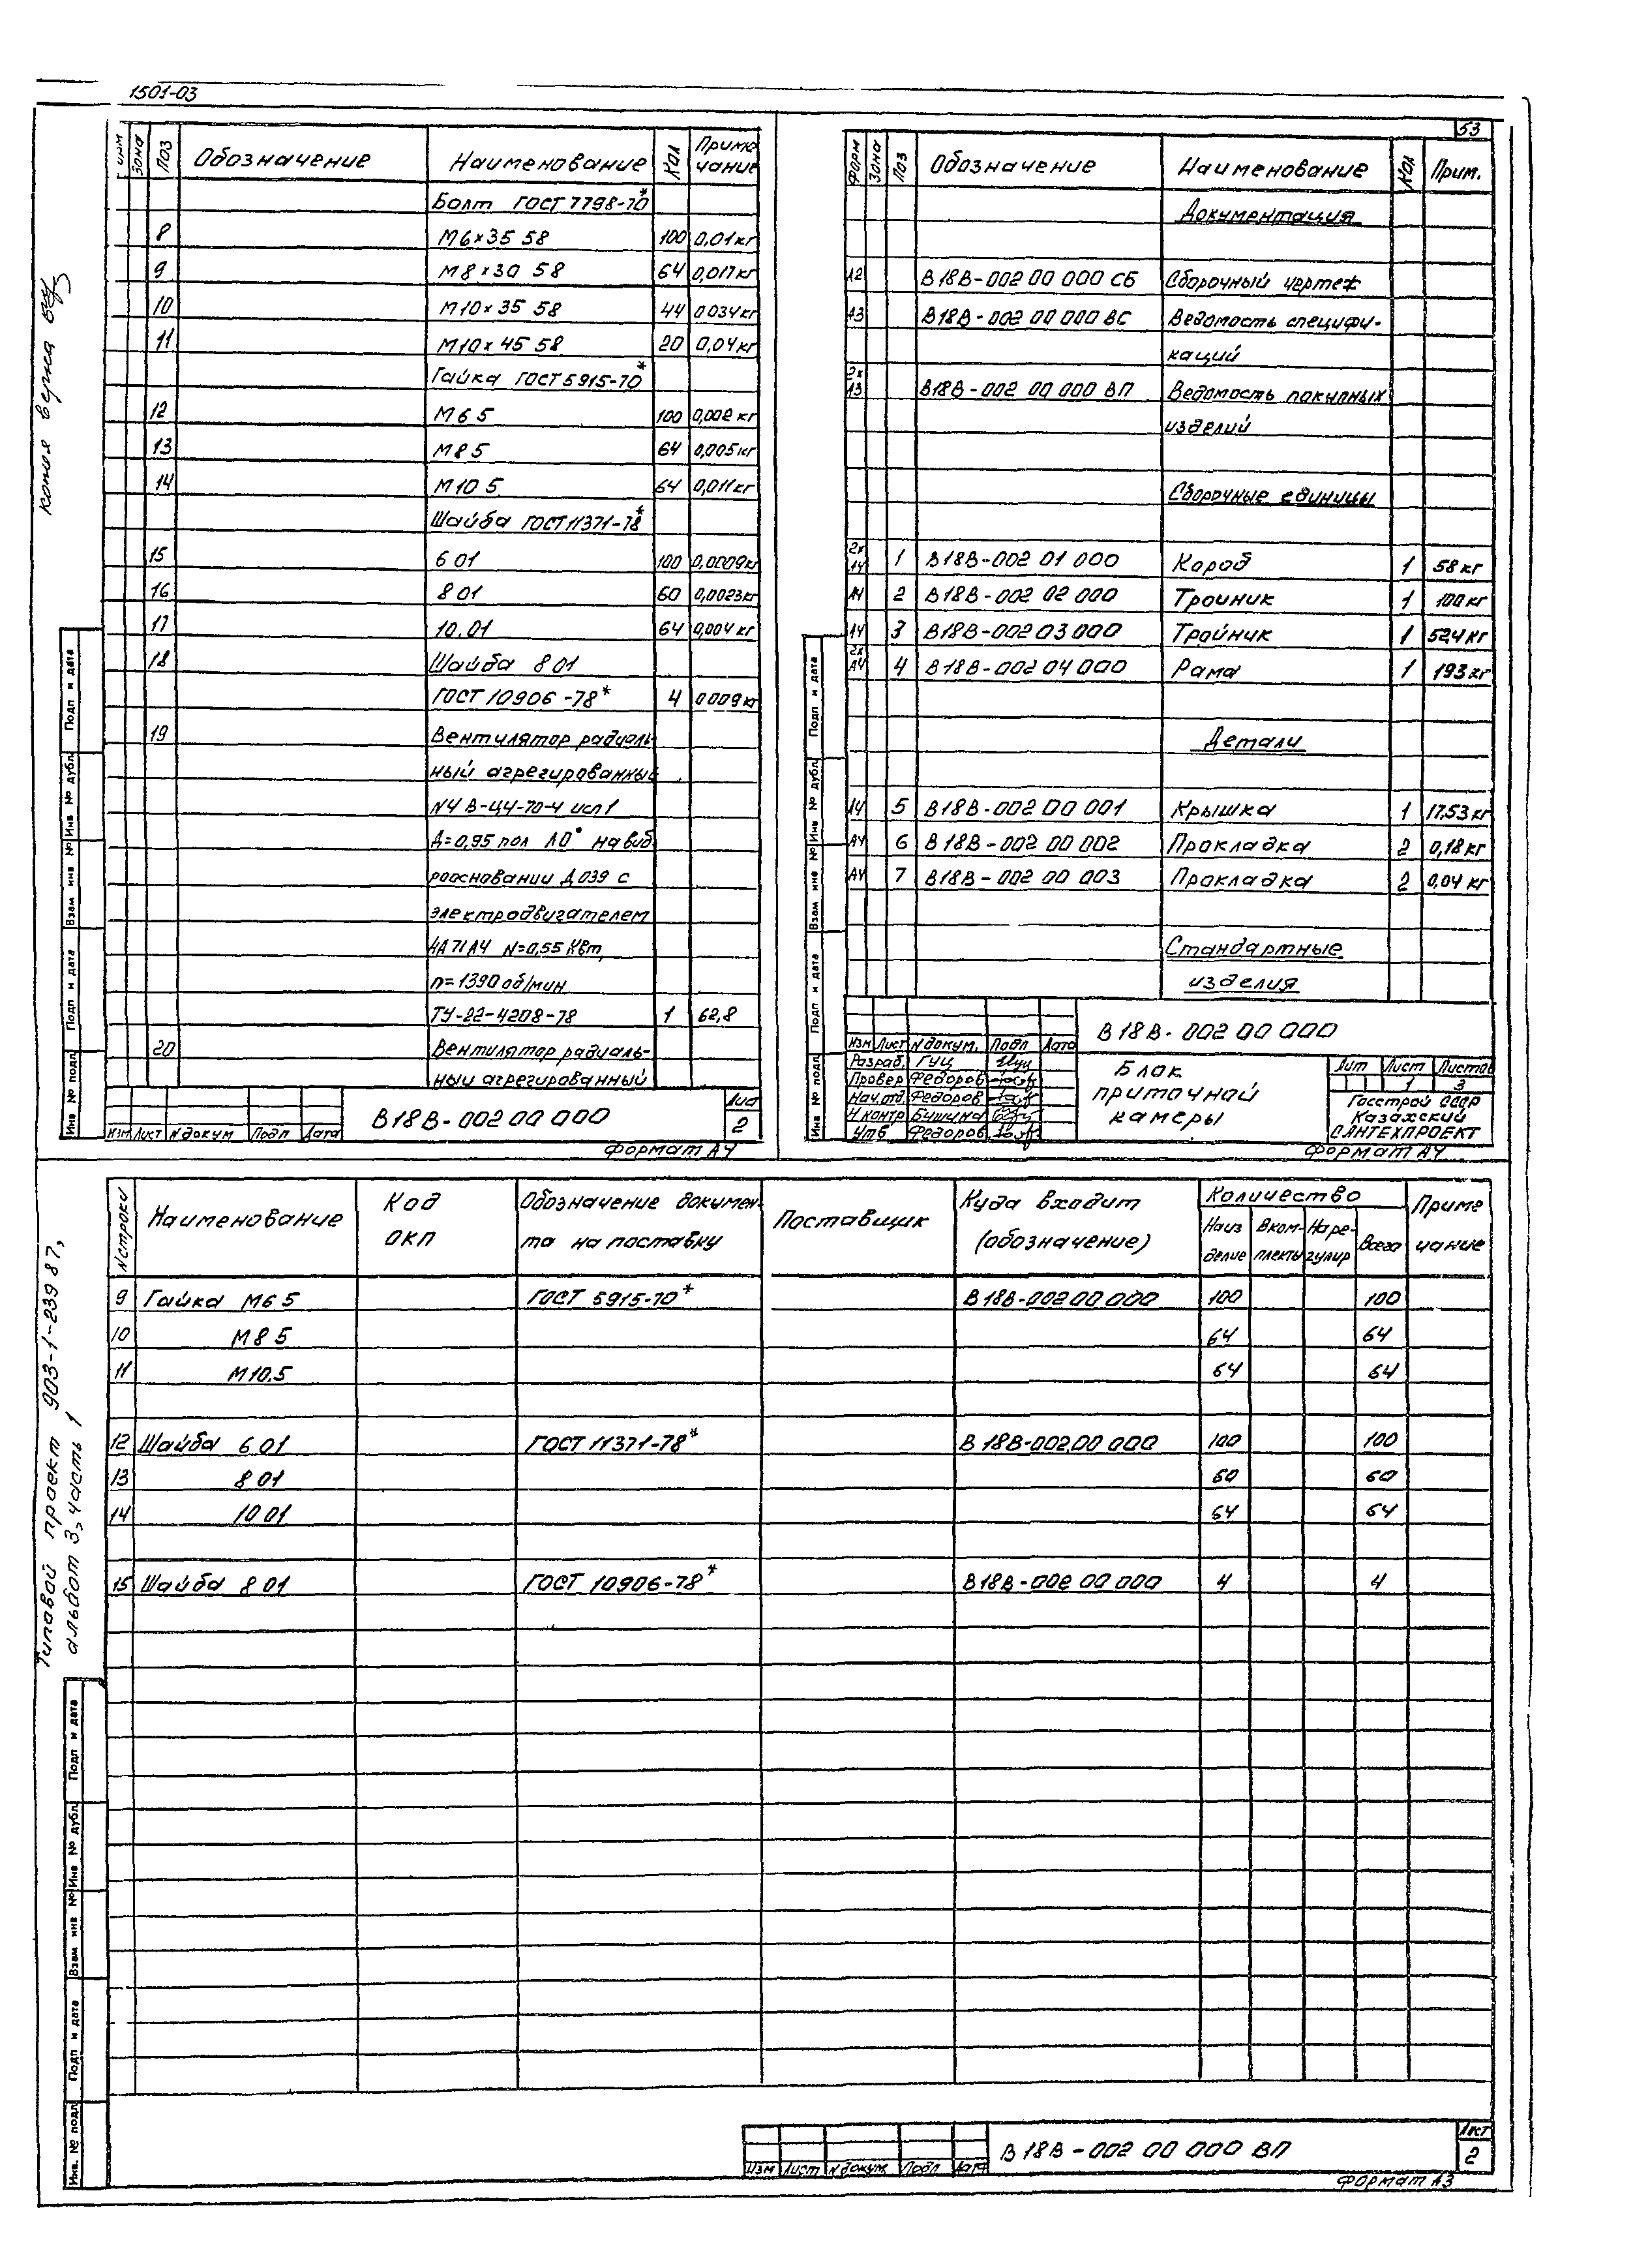 1501-03
53
копия верна
Зона Поз Обозначение Наименование Кол Приме
чание
Болт ГОСТ 7798-70*
8 М6×35 58 100 0,01кг
9 М8×30 58 64 0,017кг
10 М10×35 58 44 0 034кг
11 М10×45 58 20 0,04кг
Гайка ГОСТ 5915-70*
12 М6 5 100 0,002 кг
13 М8 5 64 0,005кг
14 М10 5 64 0,011кг
Шайба ГОСТ 11371-78*
15 6 01 100 0,0009кг
16 8 01 60 0,0023кг
17 10.01 64 0,004 кг
18 Шайба 8 01
ГОСТ 10906-78* 4 0 009кг
19 Вентилятор радиаль
ный агрегированный
N4 В-Ц4-70-4 исп 1
Д=0,95 пол Л0° на виб
роосновании Д 039 с
электродвигателем
4А71А4 N=0,55 Квт,
n=1390 об/мин
ТУ-22-4208-78 1 62,8
20 Вентилятор радиаль-
ный агрегированный
Изм Лист N докум Подп Дата
В18В-002 00 000
Лист
2
Формат А4
Инв № подл Подп и дата Взам инв № Инв № дубл Подп и дата
Форм Зона Поз Обозначение Наименование Кол Прим.
Документация
А2 В18В-002 00 000 СБ Сборочный чертеж
А3 В18В-002 00 000 ВС Ведомость специфи-
каций
2х
А3 В18В-002 00 000 ВП Ведомость покупных
изделий
Сборочные единицы
2х
А4 1 В18В-002 01 000 Короб 1 58 кг
А4 2 В18В-002 02 000 Троиник 1 100 кг
А4 3 В18В-002 03 000 Тройник 1 524 кг
2х
А4 4 В18В-002 04 000 Рама 1 193 кг
Детали
А4 5 В18В-002 00 001 Крышка 1 17,53 кг
А4 6 В18В-002 00 002 Прокладка 2 0,18 кг
А4 7 В18В-002 00 003 Прокладка 2 0,04 кг
Стандартные
изделия
Изм Лист N докум. Подп Дата
Разраб. Гуц
Провер Федоров
Нач.отд Федоров
Н контр Бушина
Утб Федоров
В18В-002 00 000
Блок
приточной
камеры
Лит Лист Листов
1 3
Госстрой СССР
Казахский
САНТЕХПРОЕКТ
Формат А4
Инв № подл Подп и дата Взам инв № Инв № дубл Подп и дата
Типовой проект 903-1-239 87,
альбом 3, часть 1
N строки Наименование Код
ОКП Обозначение докумен-
та на поставку Поставщик Куда входит
(обозначение) Количество Приме
чание
На из
делие В ком-
плекты На ре-
гулир Всего
9 Гайка М6 5 ГОСТ 5915-70* В18В-002 00 000 100 100
10 М8 5 64 64
11 М10.5 64 64
12 Шайба 6 01 ГОСТ 11371-78* В18В-002.00 000 100 100
13 8 01 60 60
14 10 01 64 64
15 Шайба 8 01 ГОСТ 10906-78* В18В-002 00 000 4 4
Изм Лист N докум Подп Дата
В18В-002 00 000 ВП
Лист
2
Формат А3
Инв. № подл Подп и дата Взам инв № Инв № дубл Подп и дата